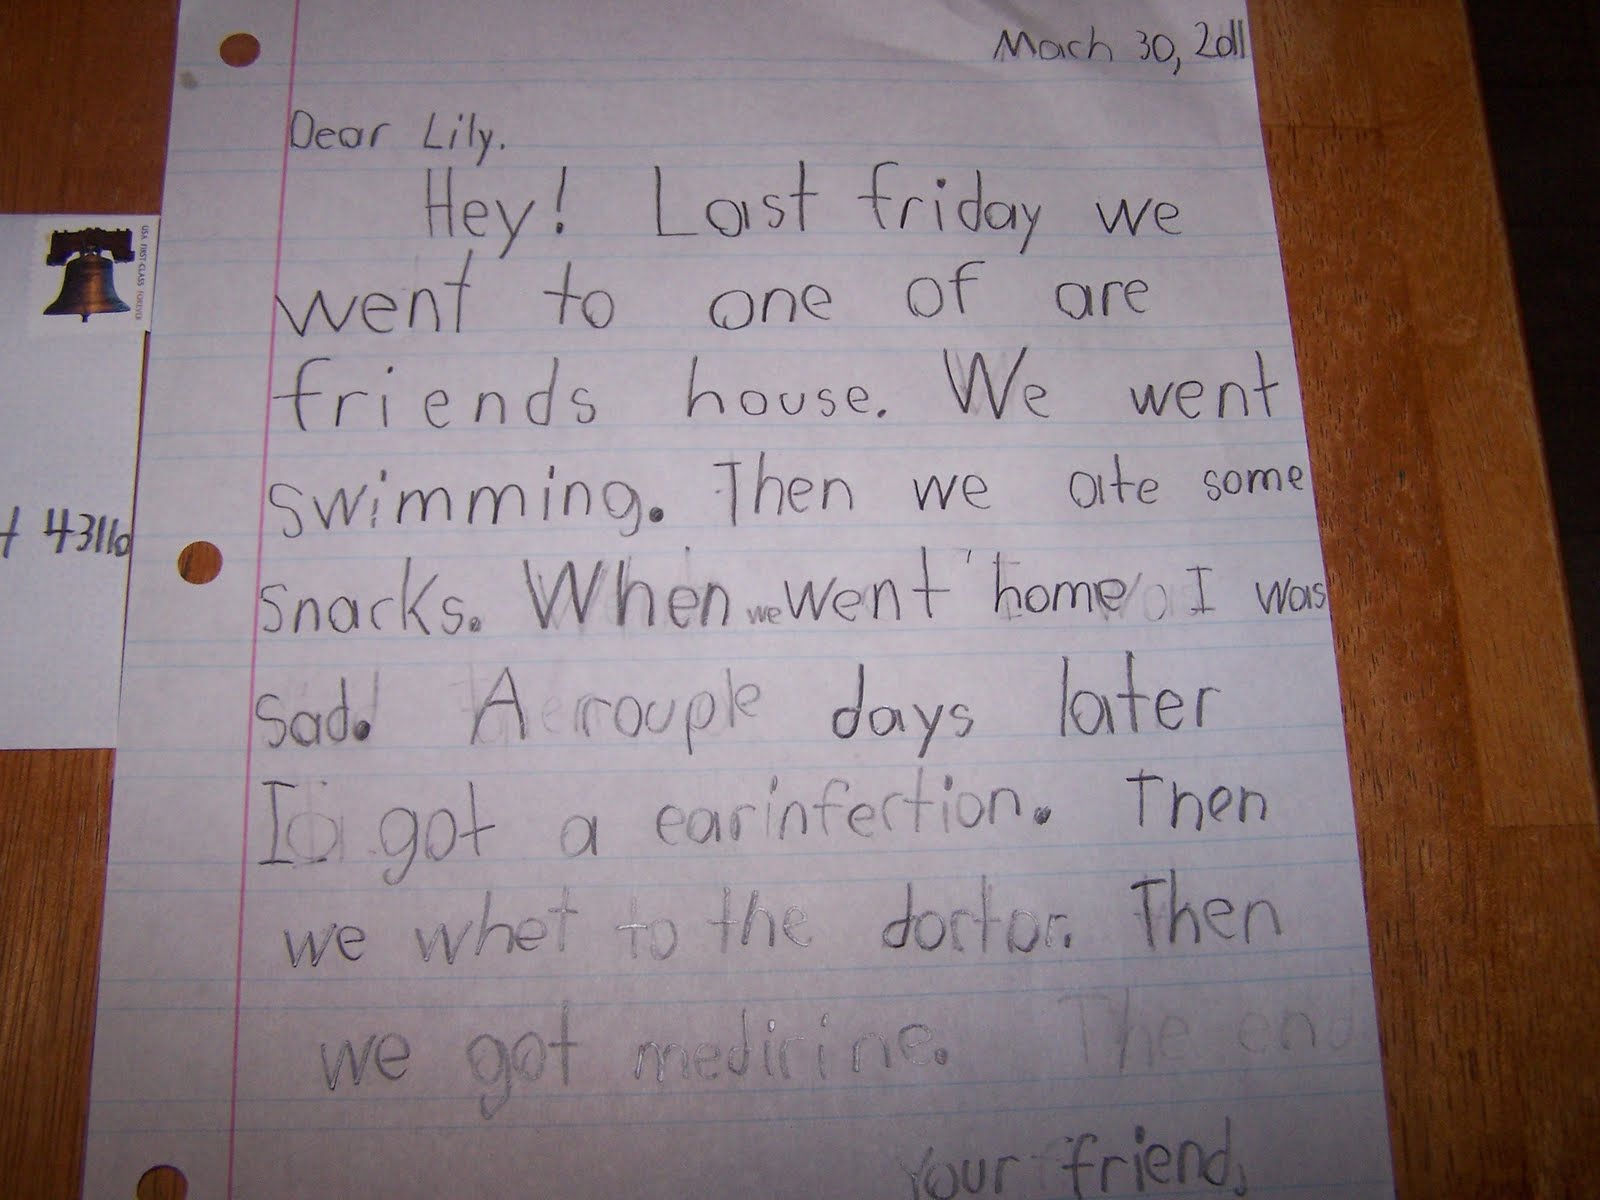 Mach 30, 2011
Dear Lily.
Hey! Last friday we
went to one of are
friends house. We went
swimming. Then we ate some
snacks. When we went home I was
sad. A couple days later
I got a earinfection. Then
we whet to the doctor. Then
we got medicine. The end
Your friend,
USA FIRST-CLASS FOREVER
43116